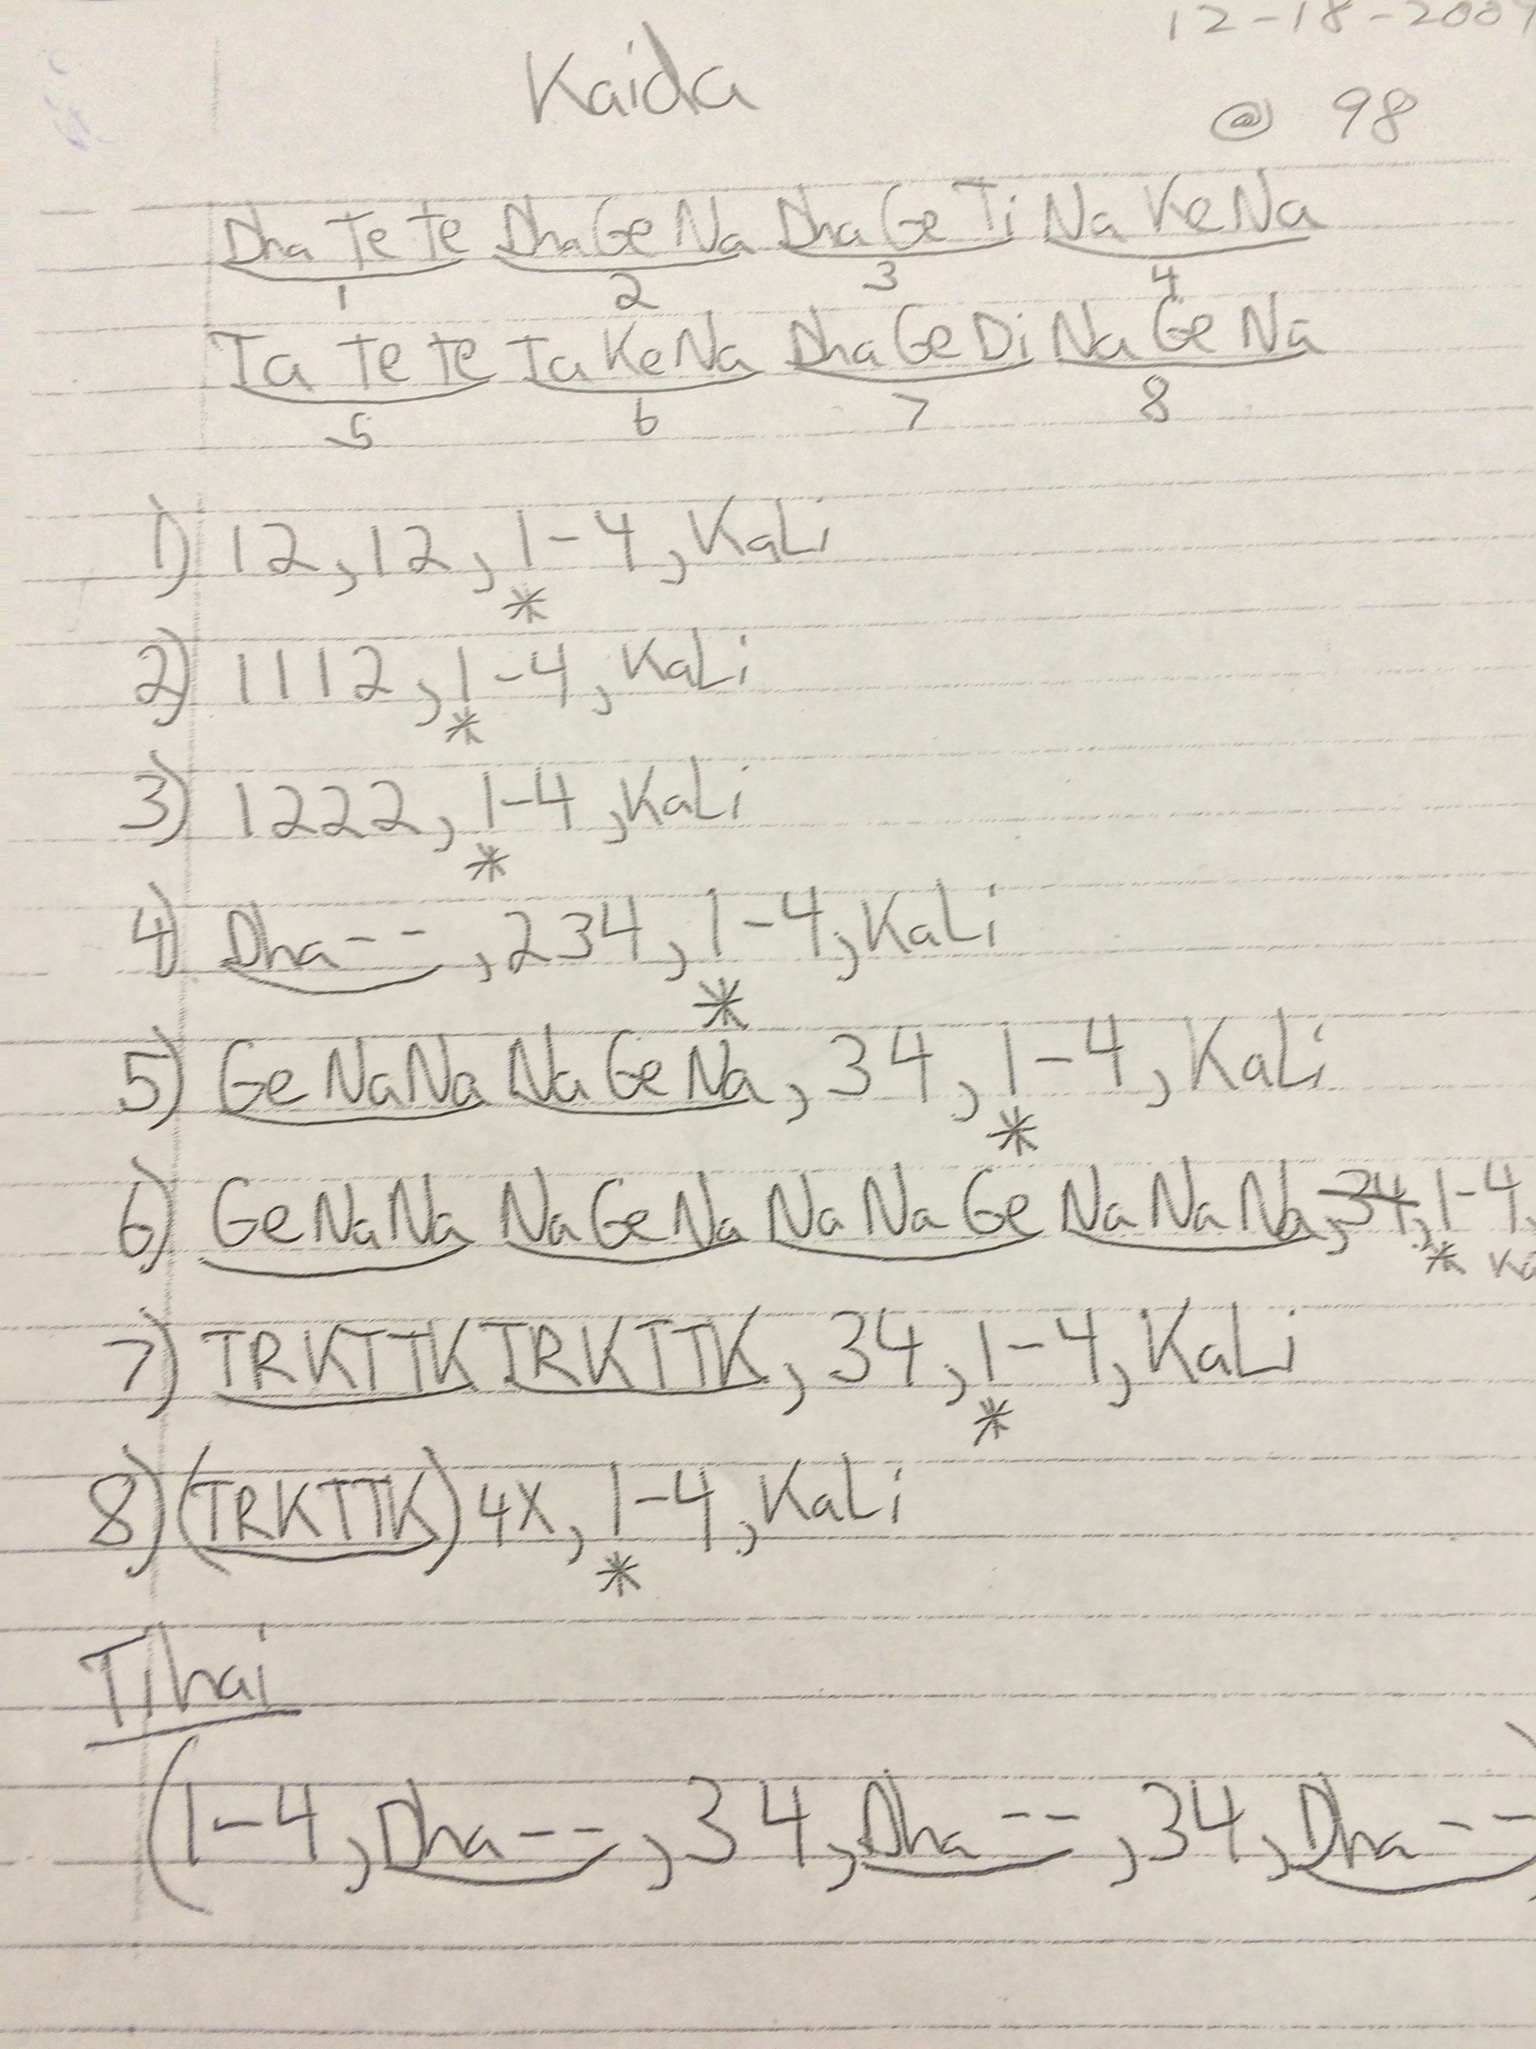 12-18-2009
Kaida
@ 98
Dha Te Te DhaGeNa DhaGeTi NaKeNa
1 2 3 4
Ta Te Te TaKeNa DhaGeDi NaGeNa
5 6 7 8
1) 12, 12, 1-4, KaLi
*
2) 1112, 1-4, KaLi
*
3) 1222, 1-4, KaLi
*
4) Dha--, 234, 1-4, KaLi
*
5) GeNaNa NaGeNa, 34, 1-4, KaLi
*
6) GeNaNa NaGeNa NaNaGe NaNaNa, 34, 1-4,
* Ka
7) TRKTTK TRKTTK, 34, 1-4, KaLi
*
8) (TRKTTK) 4X, 1-4, KaLi
*
Tihai
(1-4, Dha--, 34, Dha--, 34, Dha--)